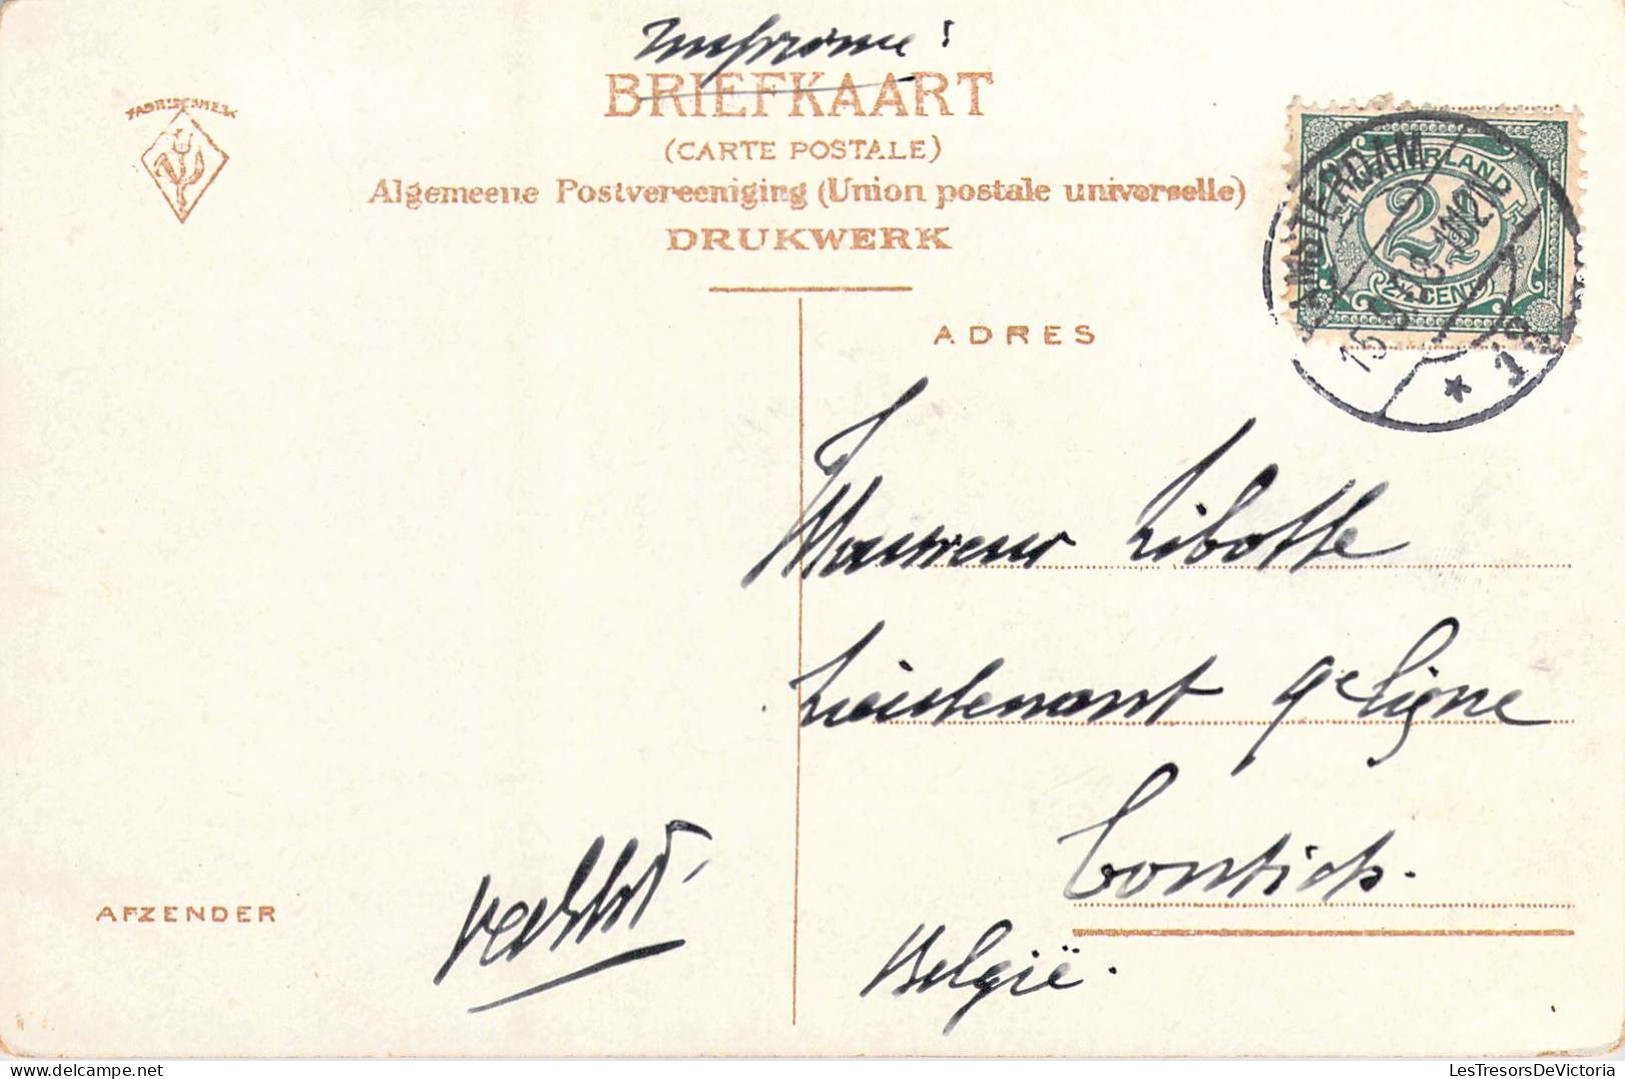 Imprimé !
BRIEFKAART
(CARTE POSTALE)
Algemeene Postvereeniging (Union postale universelle)
DRUKWERK
FABRIEKSMERK
AMSTERDAM
NEDERLAND
2½
2½ CENT
ADRES
Monsieur Libotte
Lieutenant 9e Ligne
Contich.
België.
AFZENDER
delcampe.net
LesTresorsDeVictoria